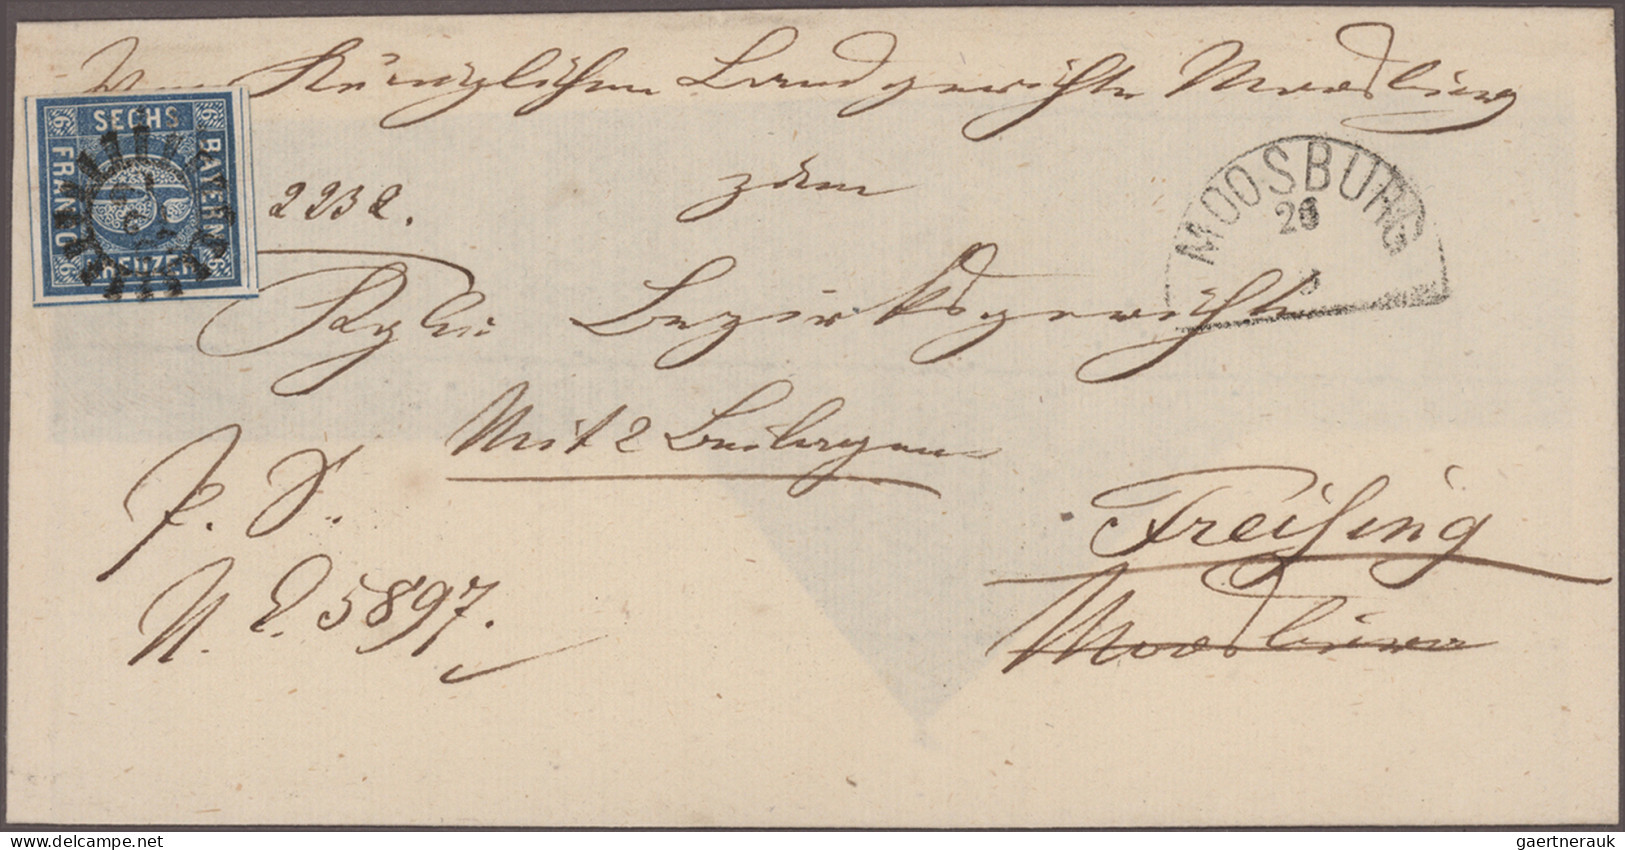 Vom Königlichen Landgerichte Moosburg
SECHS
BAYERN
FRANCO
KREUZER
6
6
6
6
6
zum
2232.
MOOSBURG
Kgln Bezirksgerichte
Mit 2 Beilagen
P. S.
Freising
N. E. 5897.
Moosburg
gaertnerauk